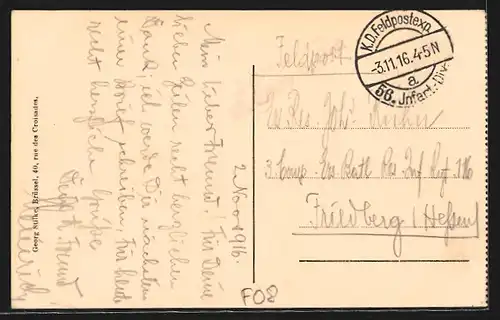 2. Nov. 1916.
Mein lieber Freund! Für Deine
lieben Zeilen recht herzlichen
Dank, ich werde Dir nächstens
einen Brief schreiben, für heute
recht herzliche Grüße
Dein tr. Freund
Heinrich
Georg Stilke, Brüssel, 40, rue des Croisades.
Feldpost
K.D.Feldpostexp.
-3.11.16. 4-5 N
a
56. Infant.-Div.
3. Comp. Ers. Batl. Res. Inf. Rgt. 116
Friedberg (Hessen)
F08